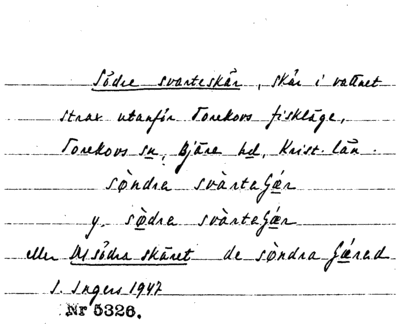 Södre svarteskär, skär i vattnet
strax utanför Torekovs fiskläge,
Torekovs sn, Bjäre hd, Krist. län.
sø̀ndra svàrtaʃǽr
y. sø̀dra svàrtaʃǽr
eller Det södra skäret de sø̀ndra ʃǽred
S. Ingers 1947
Nr 5326.